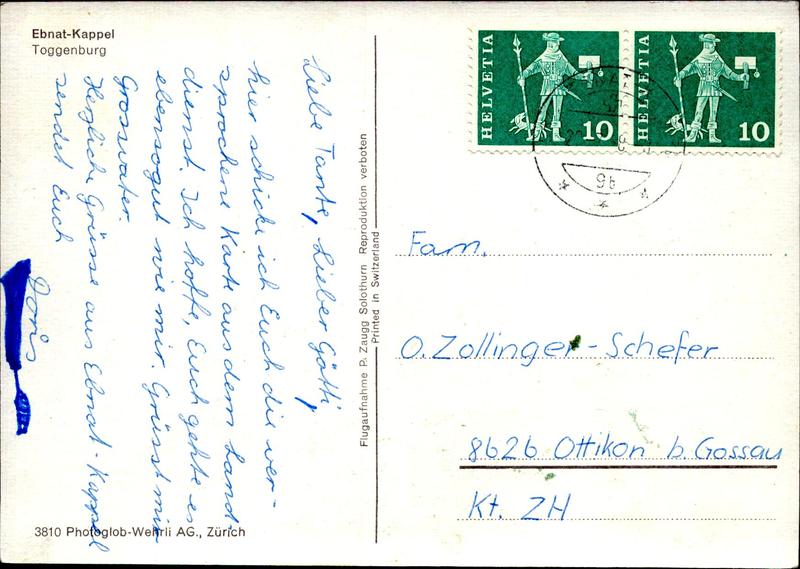 Ebnat-Kappel
Toggenburg
Liebe Tante, Lieber Götti,
hier schicke ich Euch die ver-
sprochene Karte aus dem Land-
dienst. Ich hoffe, Euch gehte es
ebensogut wie mir. Grüsst mir
Grossvater.
Herzliche Grüsse aus Ebnat-Kappel
sendet Euch
Doris
3810 Photoglob-Wehrli AG., Zürich
Flugaufnahme P. Zaugg Solothurn Reproduktion verboten
Printed in Switzerland
HELVETIA 10
HELVETIA 10
Fam.
O. Zollinger-Schefer
8626 Ottikon b. Gossau
Kt. ZH